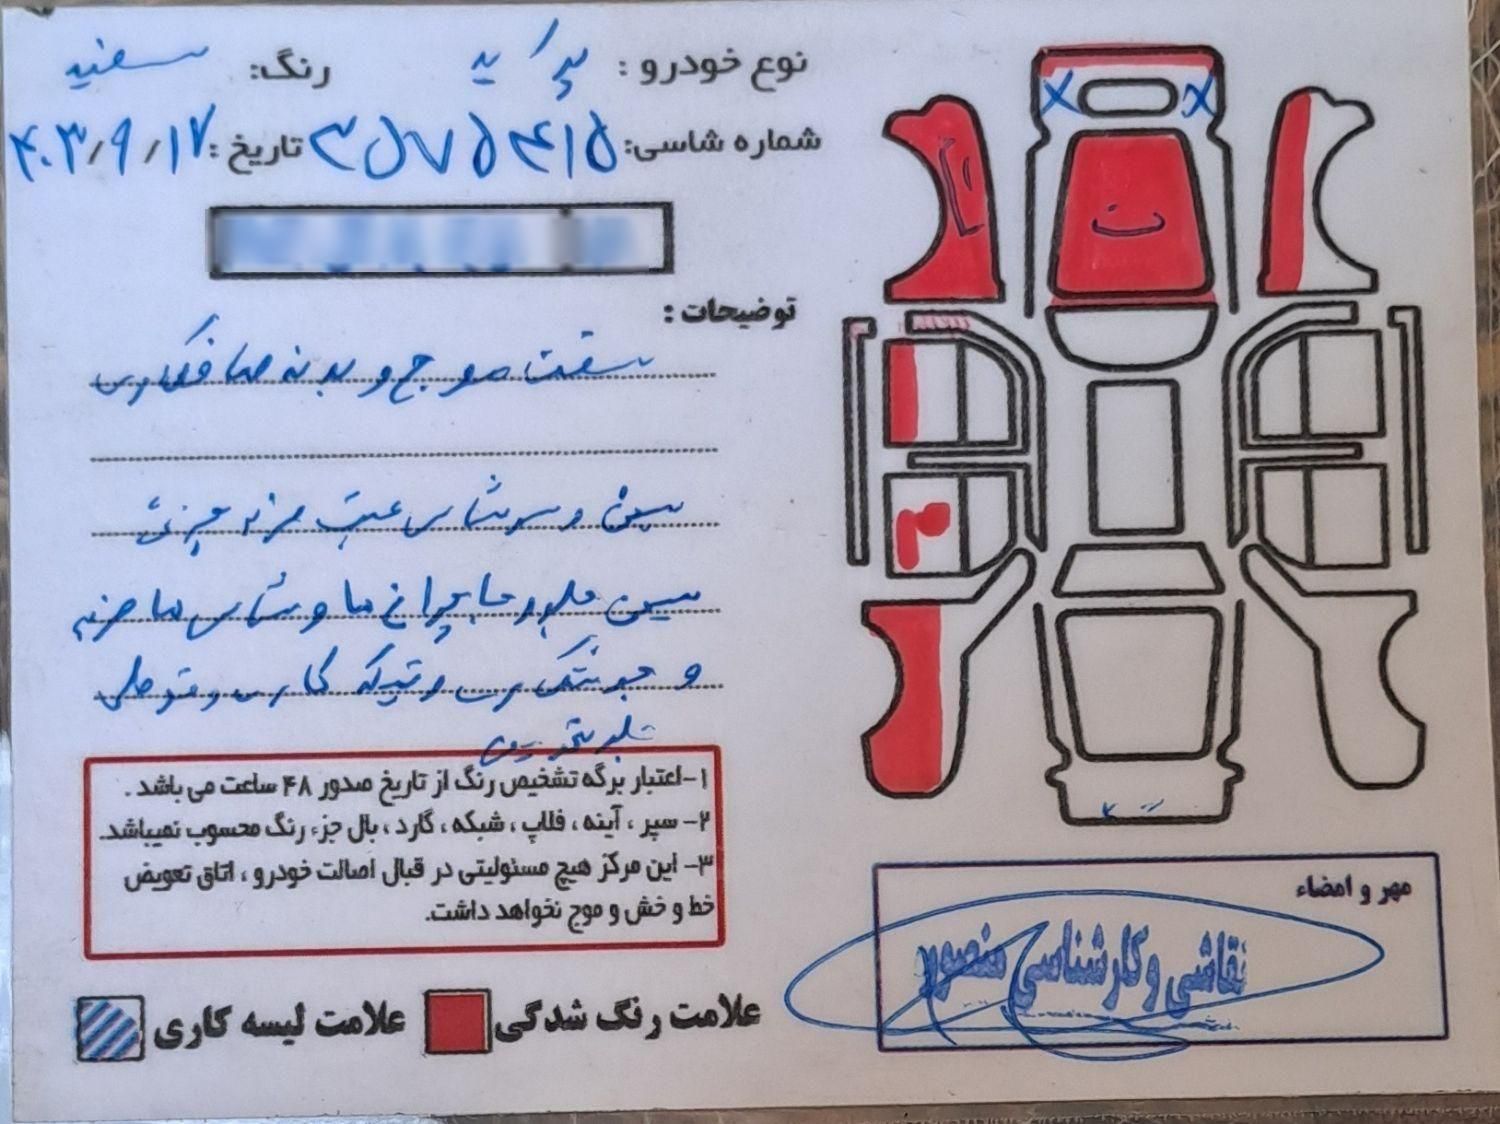 نوع خودرو : پراید رنگ: سفید
شماره شاسی: ۳۵۷۵۴۱۵ تاریخ: ۴۰۳/۹/۱۷
توضیحات :
سقف موج و بدنه صافکاری
سینی و سرشاسی عقب ضربه جزئی
سینی جلو و پا چراغ ها و شاسی ها ضربه
و جوشکاری و تیکه کاری
۱-اعتبار برگه تشخیص رنگ از تاریخ صدور ۴۸ ساعت می باشد .
۲- سپر ، آینه ، فلاپ ، شبکه ، گارد ، بال جزء رنگ محسوب نمیباشد.
۳- این مرکز هیچ مسئولیتی در قبال اصالت خودرو ، اتاق تعویض
خط و خش و موج نخواهد داشت.
علامت رنگ شدگی علامت لیسه کاری
مهر و امضاء
نقاشی و کارشناسی منصور